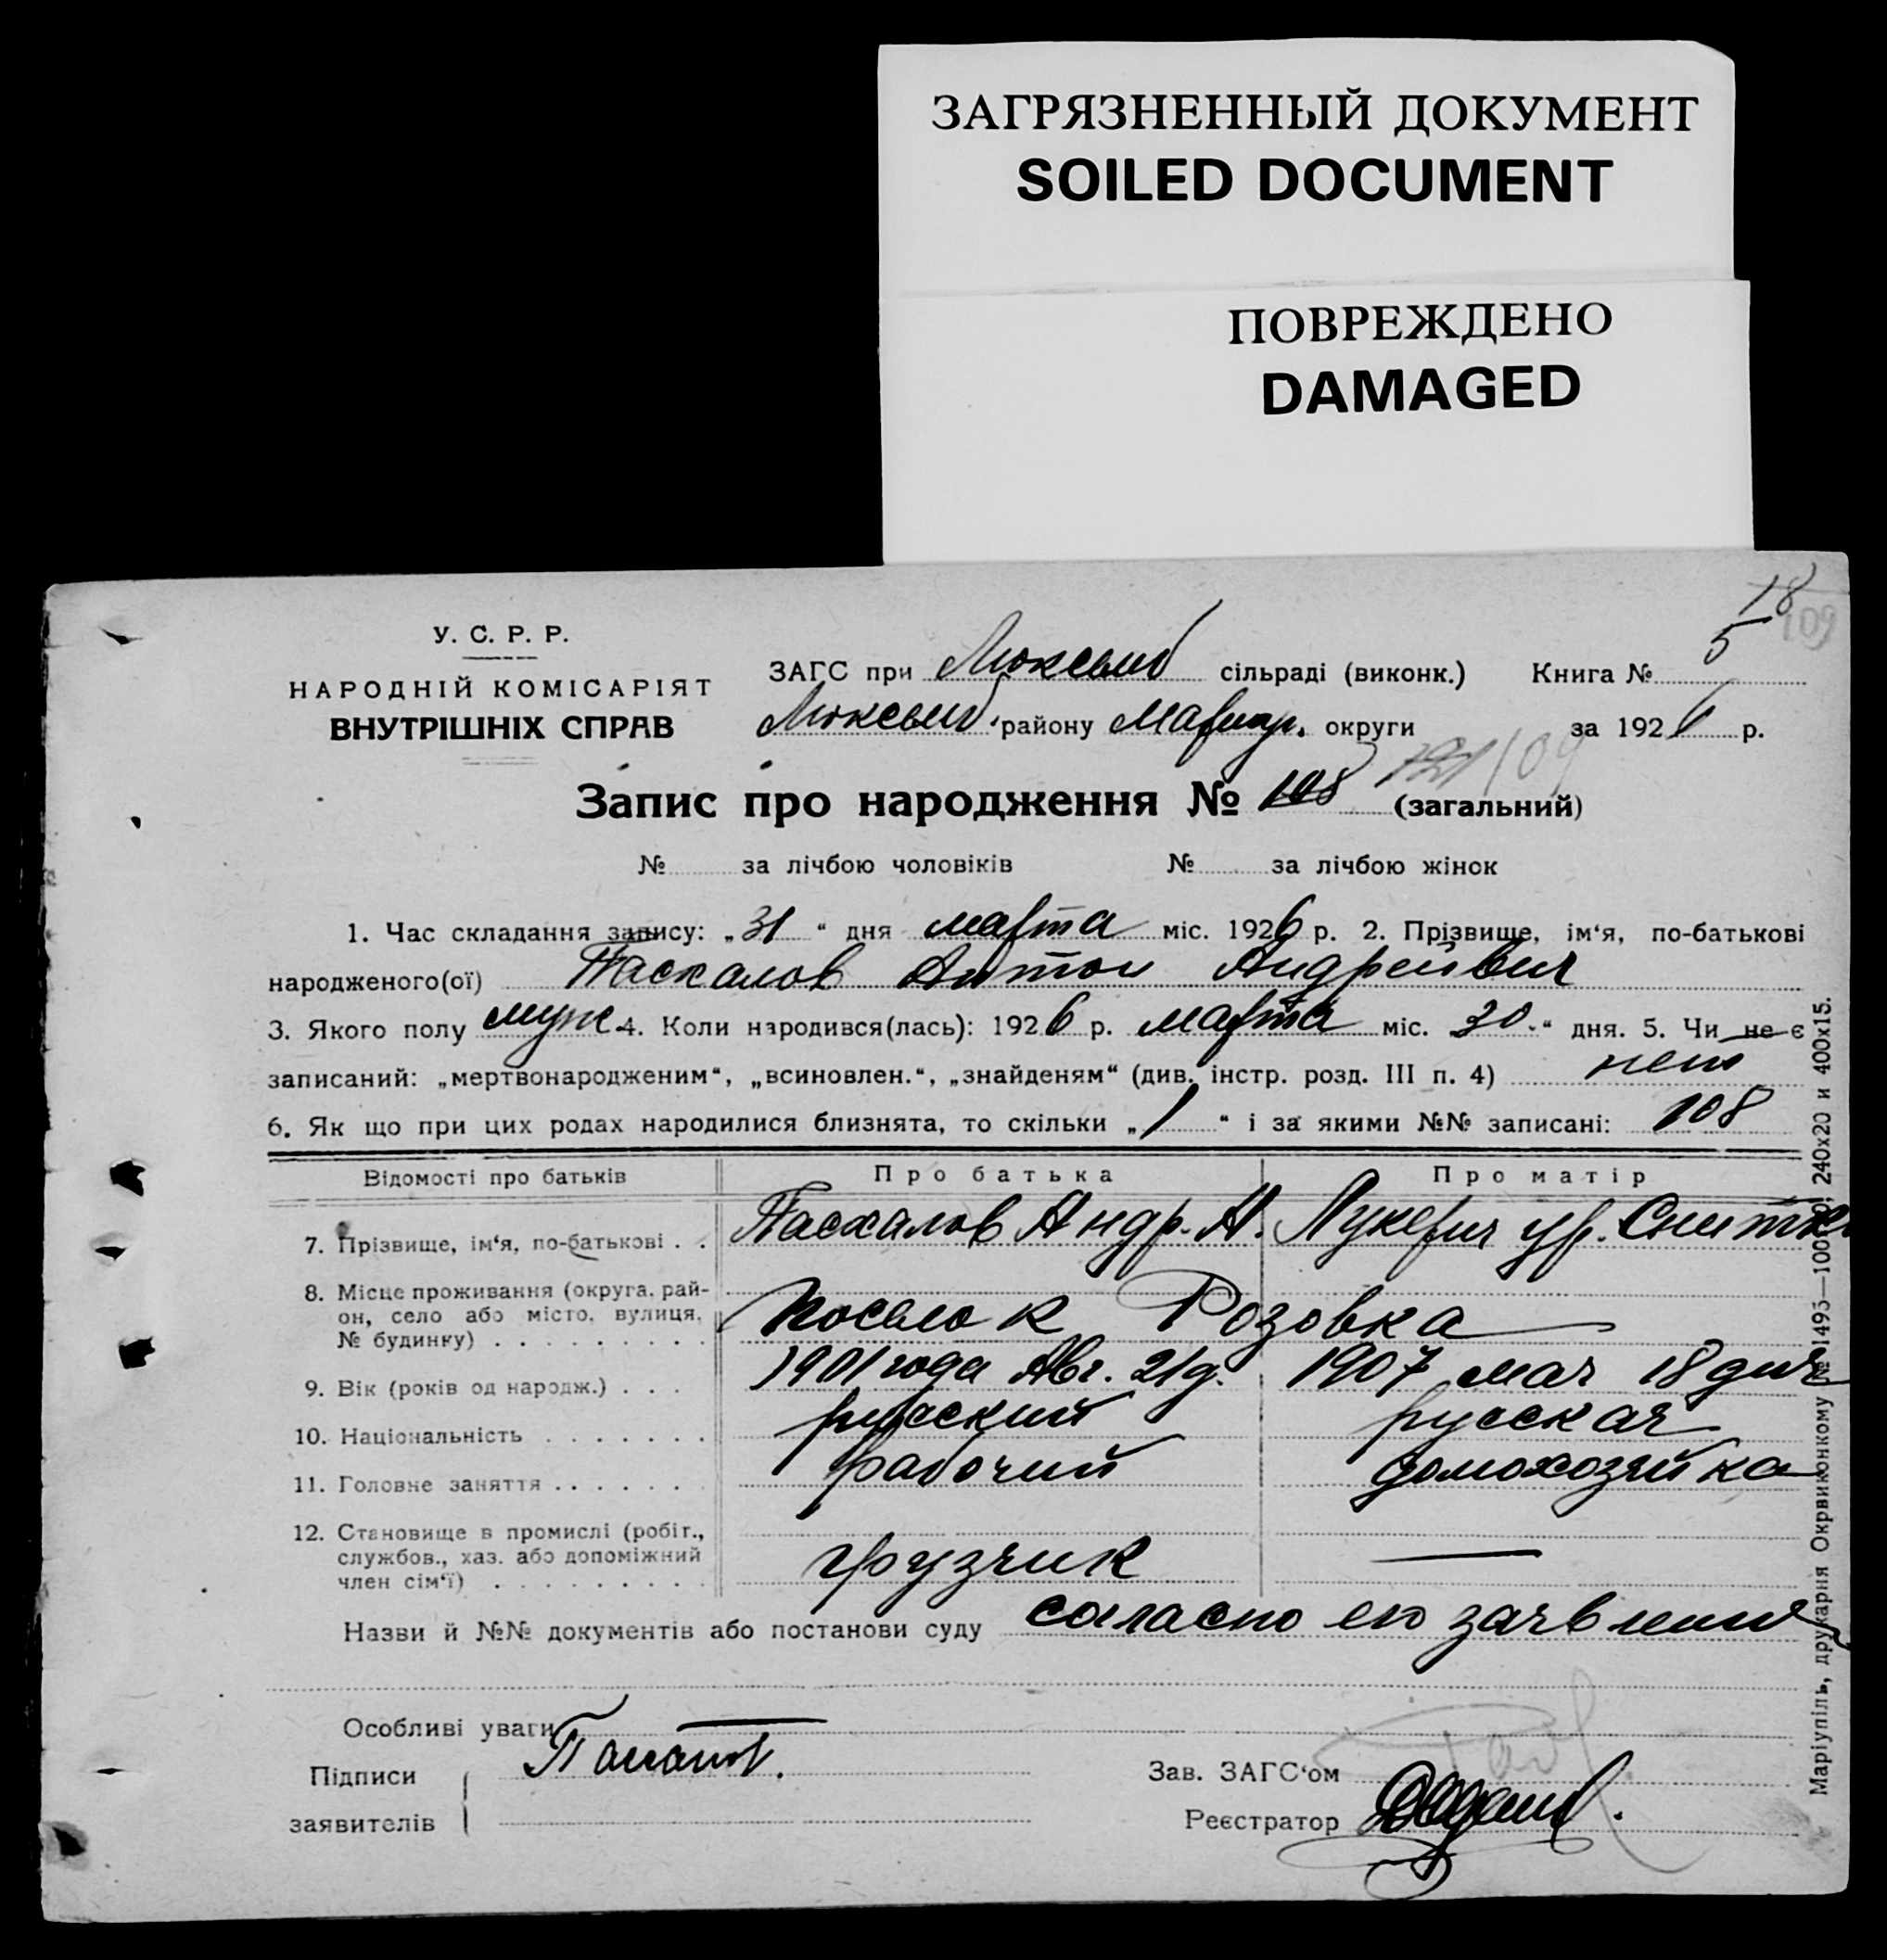 ЗАГРЯЗНЕННЫЙ ДОКУМЕНТ
SOILED DOCUMENT
ПОВРЕЖДЕНО
DAMAGED
18
109
У. С. Р. Р.
НАРОДНІЙ КОМІСАРІЯТ
ВНУТРІШНІХ СПРАВ
ЗАГС при Люксемб сільраді (виконк.) Книга № 5
Люксемб. району Мариуп. округи за 1926 р.
Запис про народження № 108 109 (загальний)
№ за лічбою чоловіків № за лічбою жінок
1. Час складання запису: „31“ дня марта міс. 1926 р. 2. Прізвище, ім‘я, по-батькові
народженого(ої) Пасхалов Антон Андрейвич
3. Якого полу муж 4. Коли народився(лась): 1926 р. марта міс. 30 “ дня. 5. Чи не є
записаний: „мертвонародженим“, „всиновлен.“, „знайденям“ (див. інстр. розд. III п. 4) нет
6. Як що при цих родах народилися близнята, то скільки „1“ і за якими №№ записані: 108
Відомості про батьків Про батька Про матір
7. Прізвище, ім‘я, по-батькові . . Пасхалов Андр. А. Лукерия ур.
8. Місце проживання (округа, рай-
он, село або місто, вулиця,
№ будинку) . . . . . . . . . Поселок Розовка
9. Вік (років од народж.) . . . 1901 года Авг. 21 д. 1907 мая 18 дня
10. Національність . . . . . . . русский русская
11. Головне заняття . . . . . . . рабочий домохозяйка
12. Становище в промислі (робіт.,
службов., хаз. або допоміжний
член сім‘ї) . . . . . . . . . грузчик —
Назви й №№ документів або постанови суду согласно его заявления
Особливі уваги
Підписи
заявителів
Зав. ЗАГС‘ом
Реєстратор
Маріупіль, друкарня Окрвиконкому № 1495—100 240х20 и 400х15.